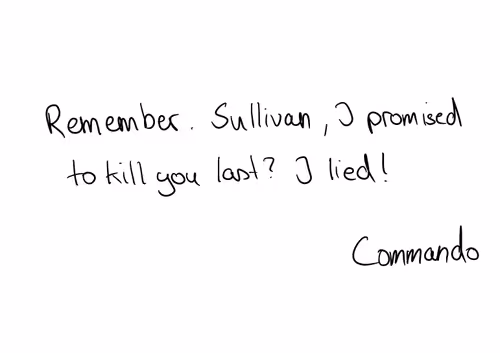 Remember. Sullivan, I promised
to kill you last? I lied!
Commando